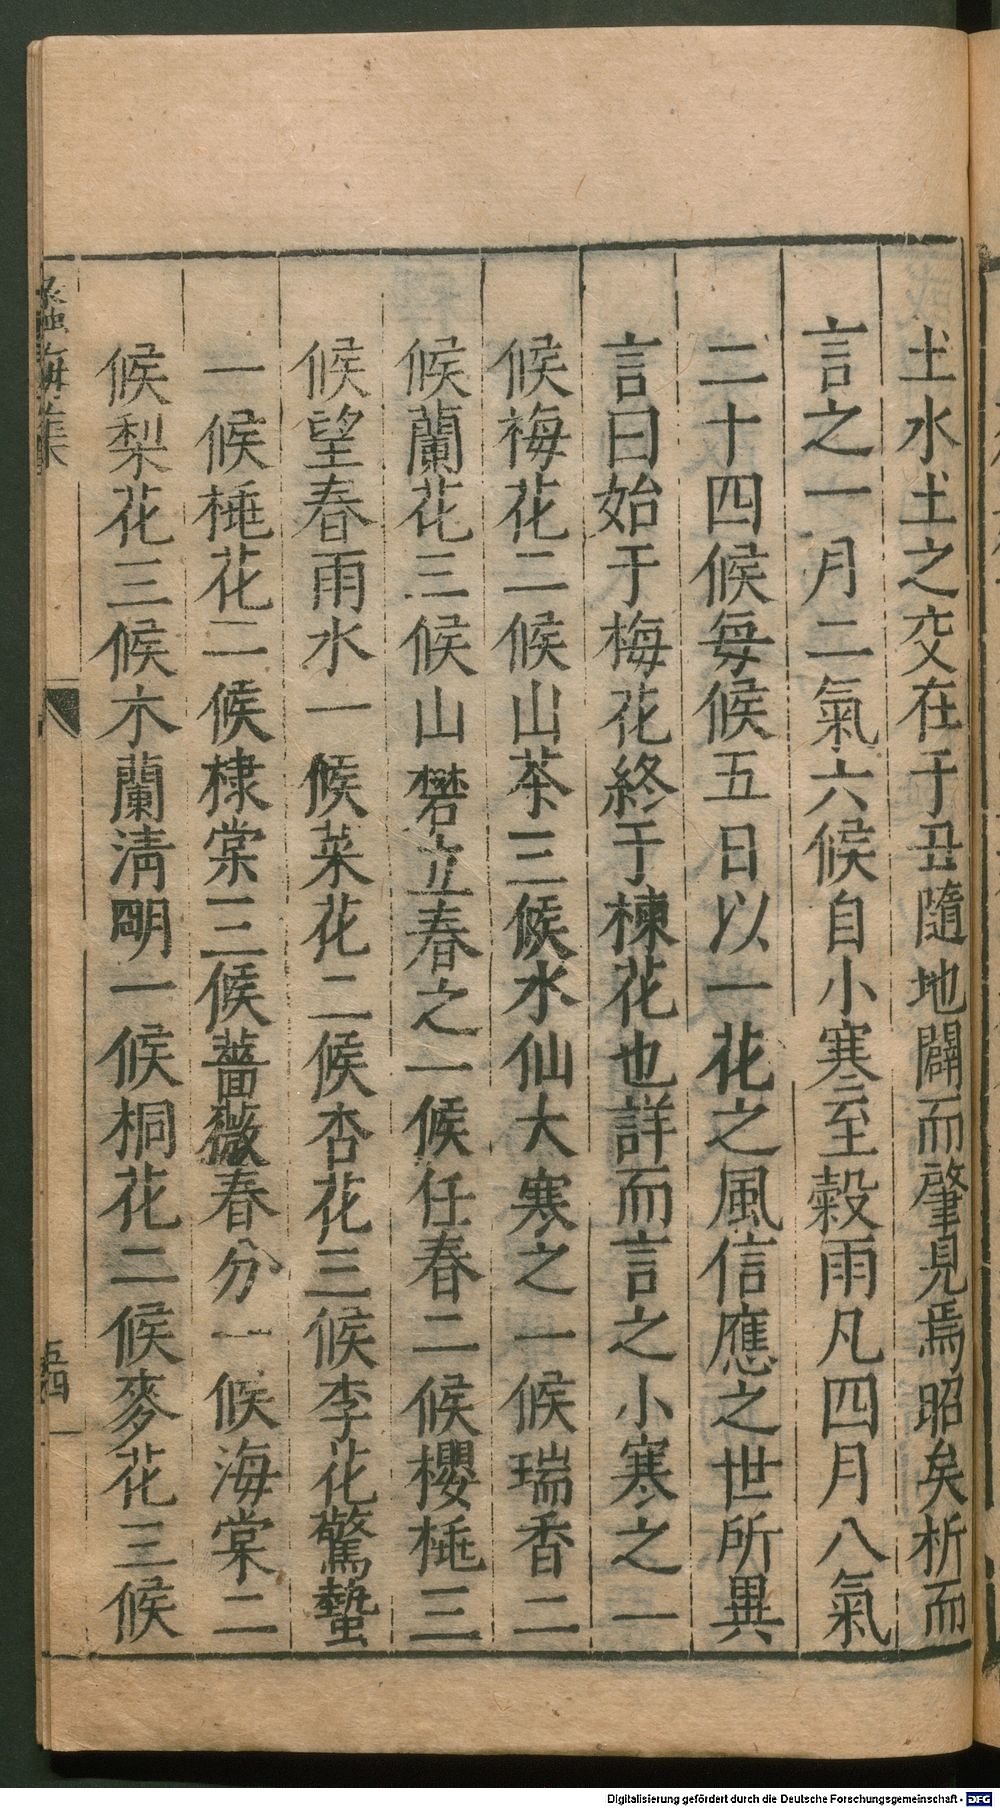 土水土之交在于丑隨地闢而肇見焉昭矣析而
言之一月二氣六候自小寒至穀雨凡四月八氣
二十四候每候五日以一花之風信應之世所異
言曰始于梅花終于楝花也詳而言之小寒之一
候梅花二候山茶三候水仙大寒之一候瑞香二
候蘭花三候山礬立春之一候任春二候櫻桃三
候望春雨水一候菜花二候杏花三候李花驚蟄
一候桃花二候棣棠三候薔薇春分一候海棠二
候梨花三候木蘭清明一候桐花二候麥花三候
蠡海集
五四
Digitalisierung gefördert durch die Deutsche Forschungsgemeinschaft - DFG